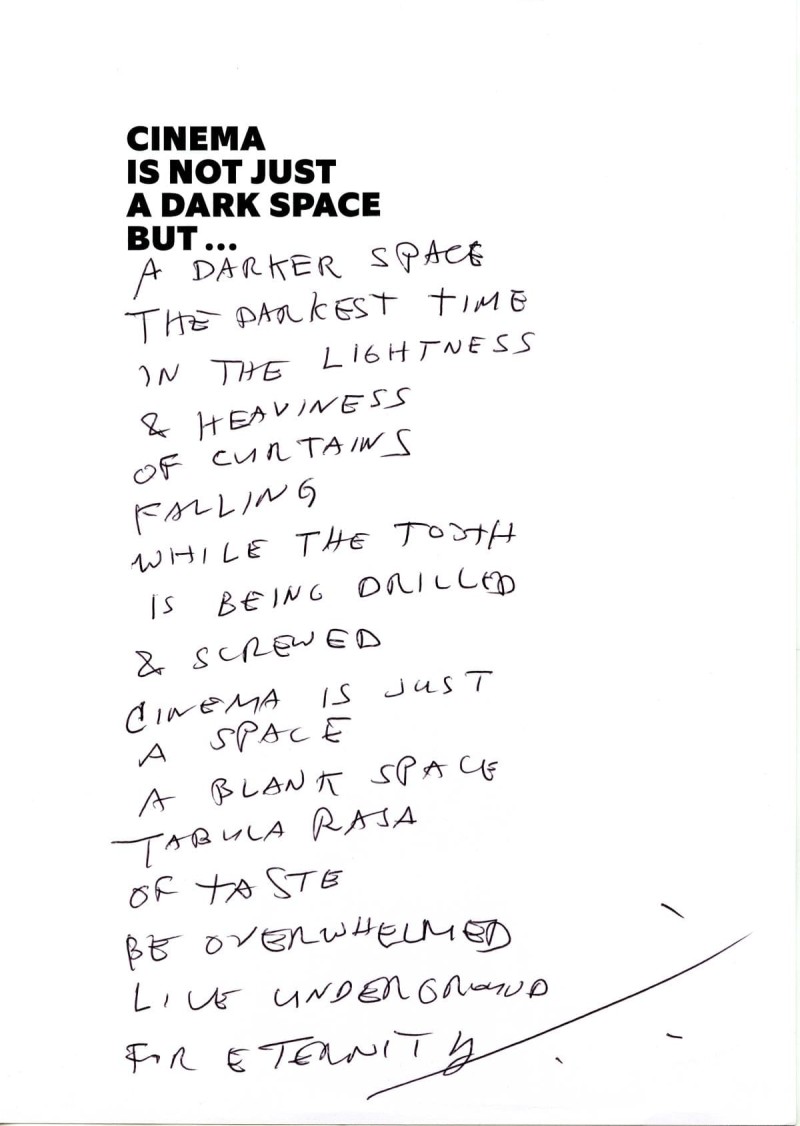 CINEMA
IS NOT JUST
A DARK SPACE
BUT ...
A DARKER SPACE
THE DARKEST TIME
IN THE LIGHTNESS
& HEAVINESS
OF CURTAINS
FALLING
WHILE THE TOOTH
IS BEING DRILLED
& SCREWED
CINEMA IS JUST
A SPACE
A BLANK SPACE
TABULA RASA
OF TASTE
BE OVERWHELMED
LIVE UNDERGROUND
FOR ETERNITY